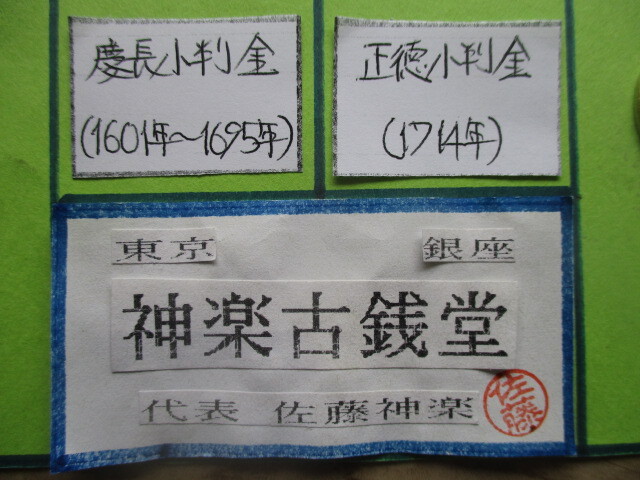 慶長小判金
(1601年〜1695年)
正徳小判金
(1714年)
東京 銀座
神楽古銭堂
代表 佐藤神楽
佐藤